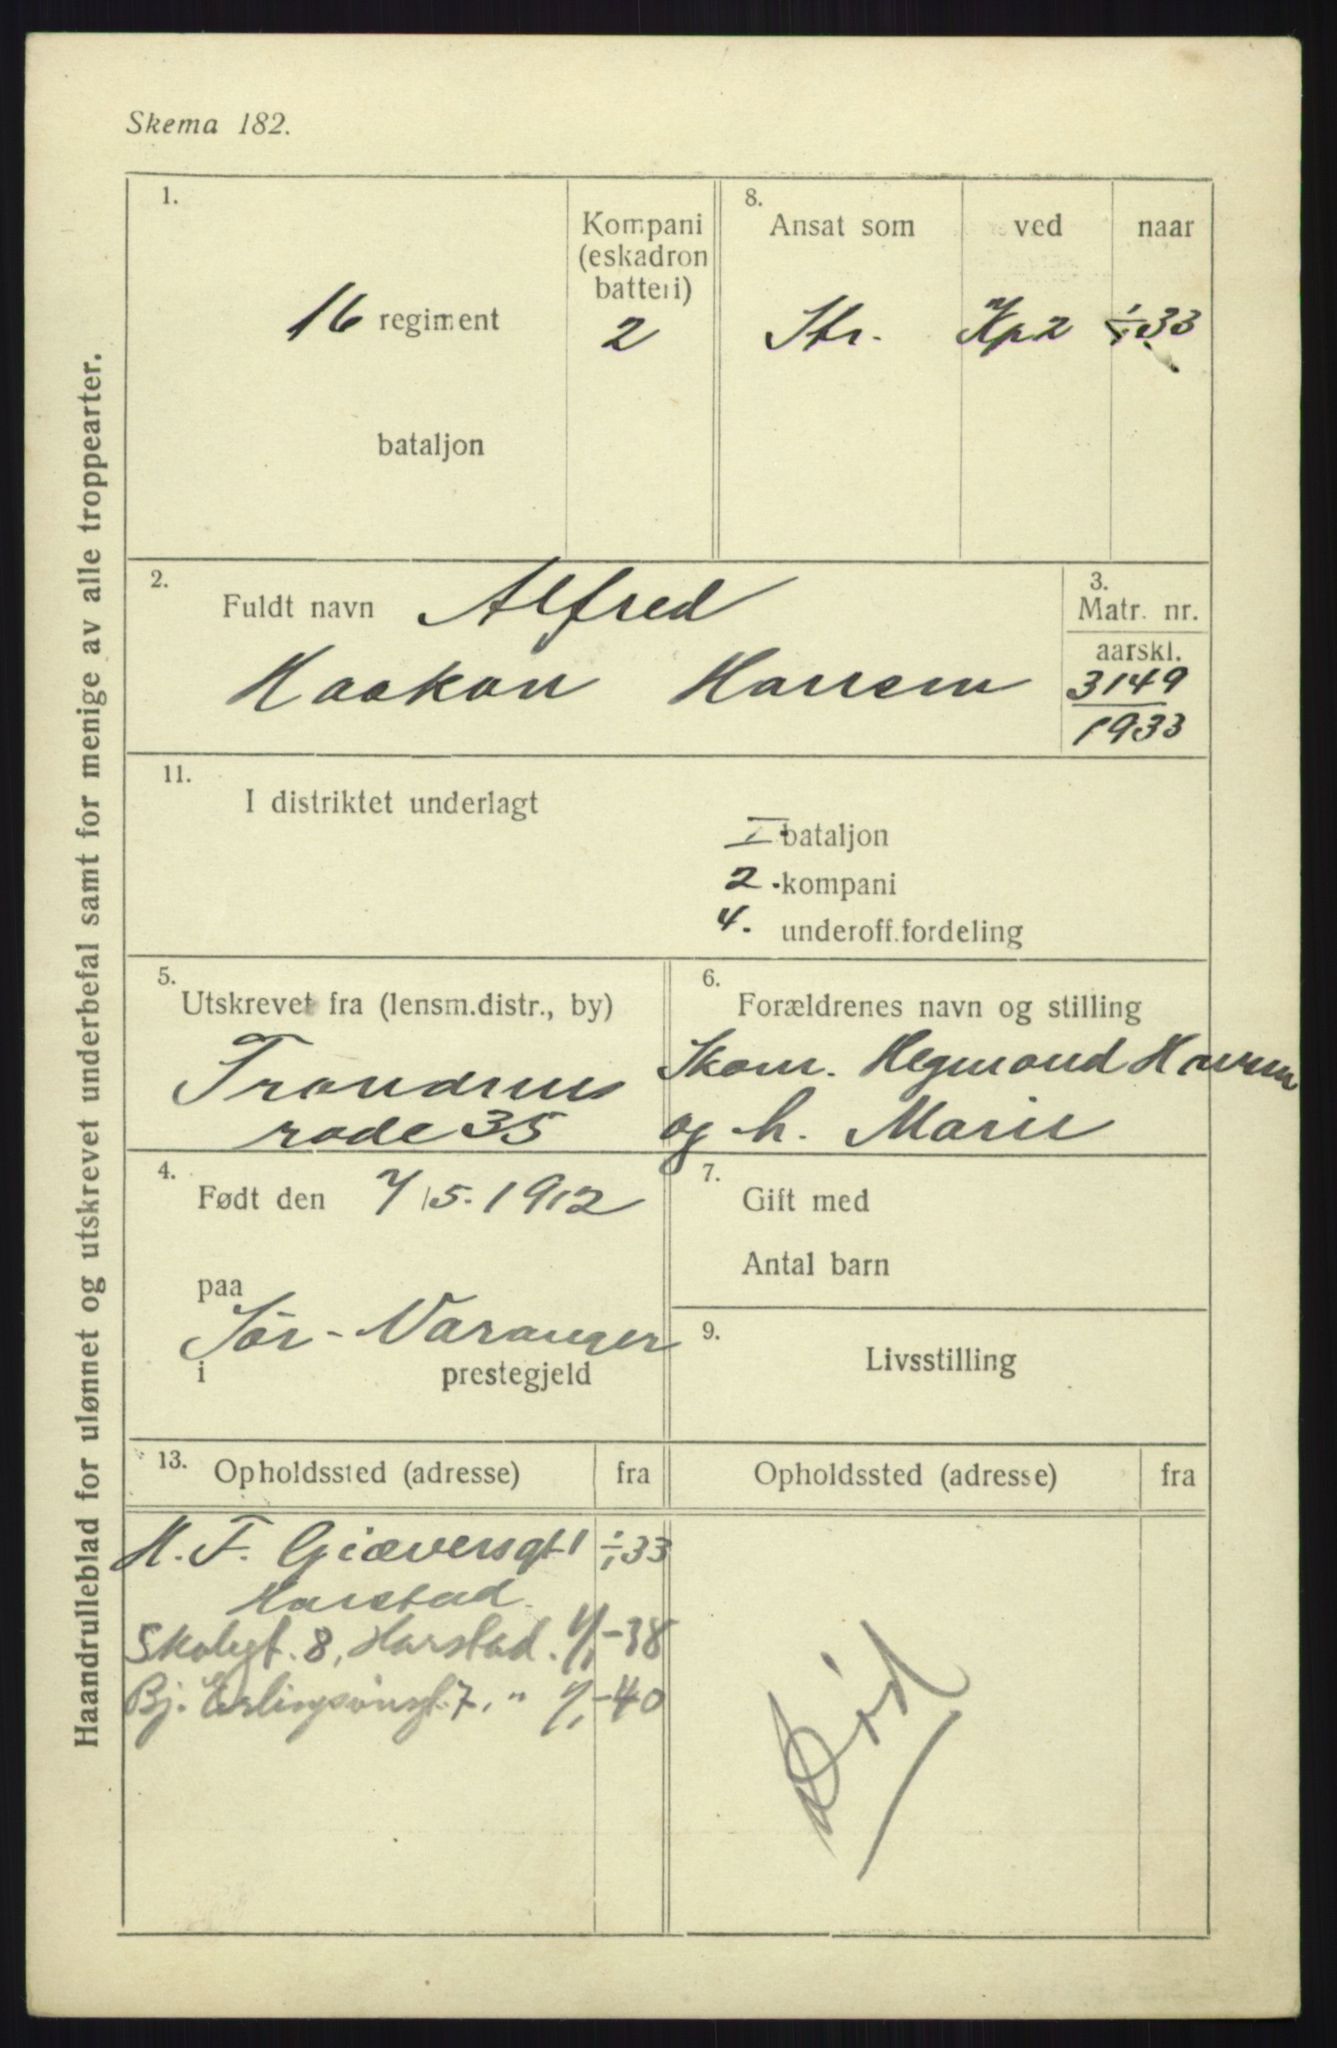 Skema 182.
Haandrulleblad for ulønnet og utskrevet underbefal samt for menige av alle troppearter.
1.
16 regiment
bataljon
Kompani
(eskadron
batteri)
2
8.
Ansat som ved naar
Str. Kp2 1/1 33
2.
Fuldt navn Alfred
Haakon Hansen
3.
Matr. nr.
aarskl.
3149
1933
11.
I distriktet underlagt
I. bataljon
2. kompani
4. underoff.fordeling
5.
Utskrevet fra (lensm.distr., by)
Trondenes
rode 35
6.
Forældrenes navn og stilling
Skom. Hegmond Hansen
og h. Marie
4.
Født den 7/5-1912
paa
Sør-Varanger
i prestegjeld
7.
Gift med
Antal barn
9.
Livsstilling
13.
Opholdssted (adresse) fra
Opholdssted (adresse) fra
H. F. Giæversgt 1 1/1 33
Harstad
Skolegt. 8, Harstad. 1/1-38
Bj. Erlingsønsgt. 7. " 1/1-40
Død